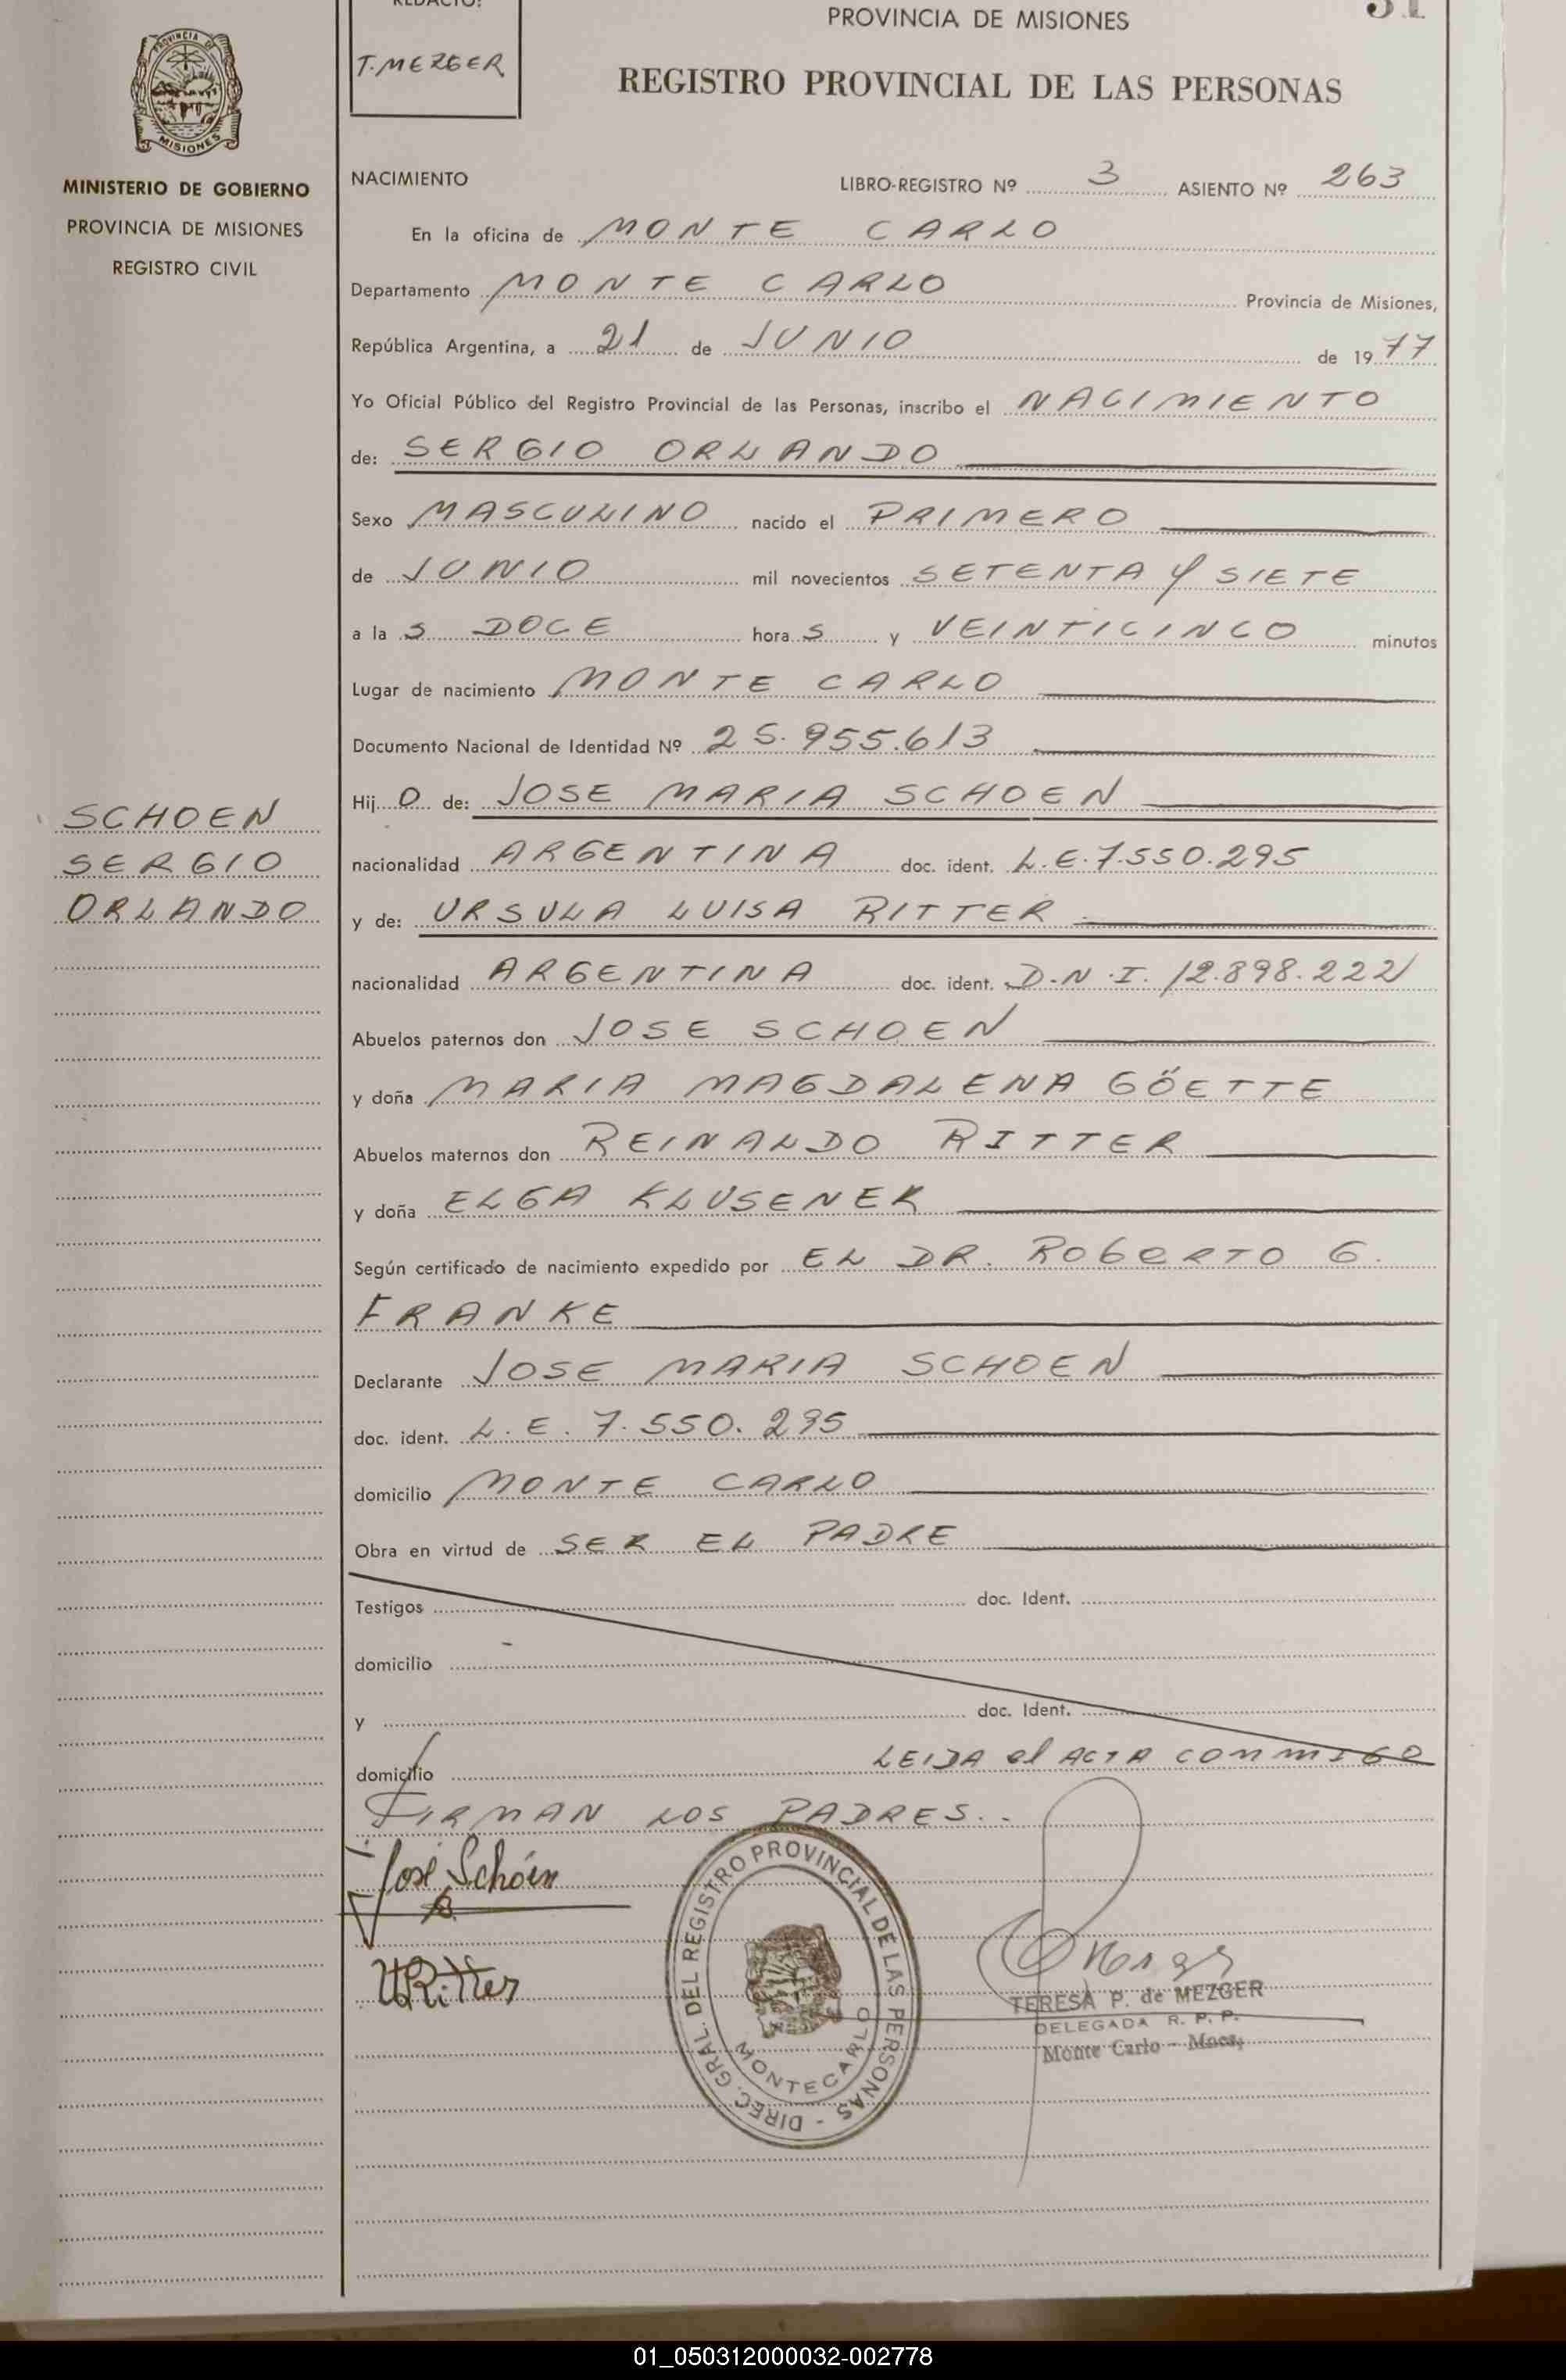 REDACTO:
T. MEZGER
PROVINCIA DE MISIONES
REGISTRO PROVINCIAL DE LAS PERSONAS
PROVINCIA DE
MISIONES
MINISTERIO DE GOBIERNO
PROVINCIA DE MISIONES
REGISTRO CIVIL
NACIMIENTO LIBRO-REGISTRO Nº 3 ASIENTO Nº 263
En la oficina de MONTE CARLO
Departamento MONTE CARLO Provincia de Misiones,
República Argentina, a 21 de JUNIO de 19 77
Yo Oficial Público del Registro Provincial de las Personas, inscribo el NACIMIENTO
de: SERGIO ORLANDO
Sexo MASCULINO nacido el PRIMERO
de JUNIO mil novecientos SETENTA Y SIETE
a la S DOCE hora S y VEINTICINCO minutos
Lugar de nacimiento MONTE CARLO
Documento Nacional de Identidad Nº 25.955.613
Hij O de: JOSE MARIA SCHOEN
SCHOEN
SERGIO
ORLANDO
nacionalidad ARGENTINA doc. ident. L.E. 7.550.295
y de: URSULA LUISA RITTER
nacionalidad ARGENTINA doc. ident. D.N.I. 12.898.222
Abuelos paternos don JOSE SCHOEN
y doña MARIA MAGDALENA GÖETTE
Abuelos maternos don REINALDO RITTER
y doña ELGA KLUSENER
Según certificado de nacimiento expedido por EL DR. ROBERTO G.
FRANKE
Declarante JOSE MARIA SCHOEN
doc. ident. L.E. 7.550.295
domicilio MONTE CARLO
Obra en virtud de SER EL PADRE
Testigos doc. Ident.
domicilio
y doc. Ident.
domicilio LEIDA el ACTA CONMIGO
FIRMAN LOS PADRES.-
José Schóen
URitter
DIREC. GRAL. DEL REGISTRO PROVINCIAL DE LAS PERSONAS -
MONTECARLO
TERESA P. de MEZGER
DELEGADA R. P. P.
Monte Carlo - Mnes.
01_050312000032-002778